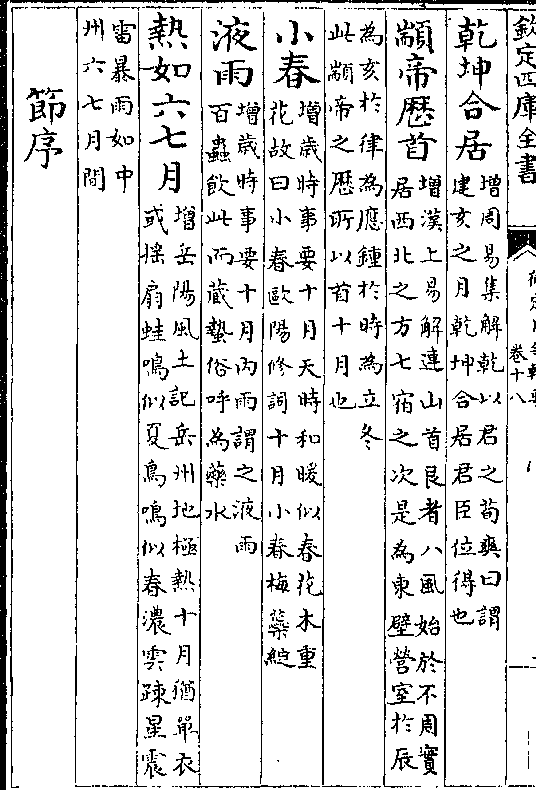 欽定四庫全書
卷十八
乾坤合居
增周易集解乾以君之荀爽曰謂
建亥之月乾坤合居君臣位得也
顓帝歷首
增漢上易解連山首艮者八風始於不周實
居西北之方七宿之次是為東壁營室於辰
為亥於律為應鍾於時為立冬
此顓帝之歷所以首十月也
小春
增歲時事要十月天時和暖似春花木重
花故曰小春歐陽修詞十月小春梅蘂綻
液雨
增歲時事要十月內雨謂之液雨
百蟲飲此而藏蟄俗呼為藥水
熱如六七月
增岳陽風土記岳州地極熱十月猶單衣
或揺扇蛙鳴似夏鳥鳴似春濃雲踈星震
雷暴雨如中
州六七月間
節序